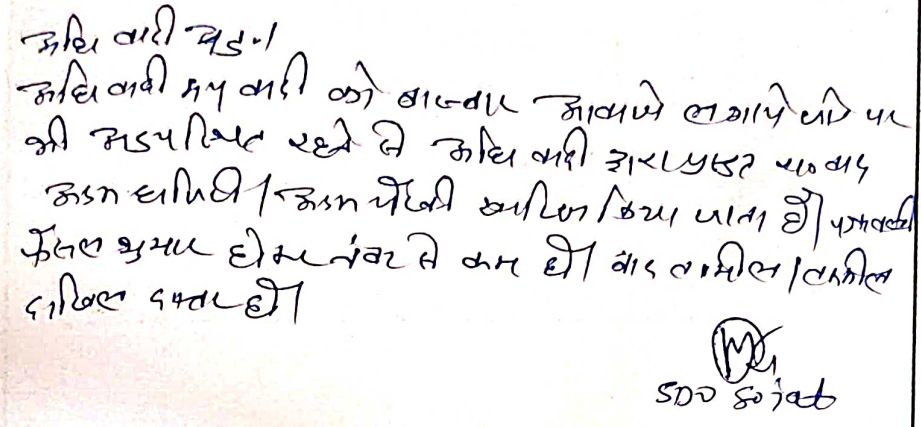 अधि वादी अनु.।
अधिवादी मय वादी को बारबार आवाजे लगाये जाने पर
भी अनुपस्थित रहने से अधिवादी द्वारा प्रस्तुत वाद
अदम हाजिरी/अदम पैरवी खारिज किया जाता है। पत्रावली
फैसल शुमार होकर नंबर से कम हो। बाद तामील/तकमील
दाखिल दफ्तर हो।
SDO Sojat